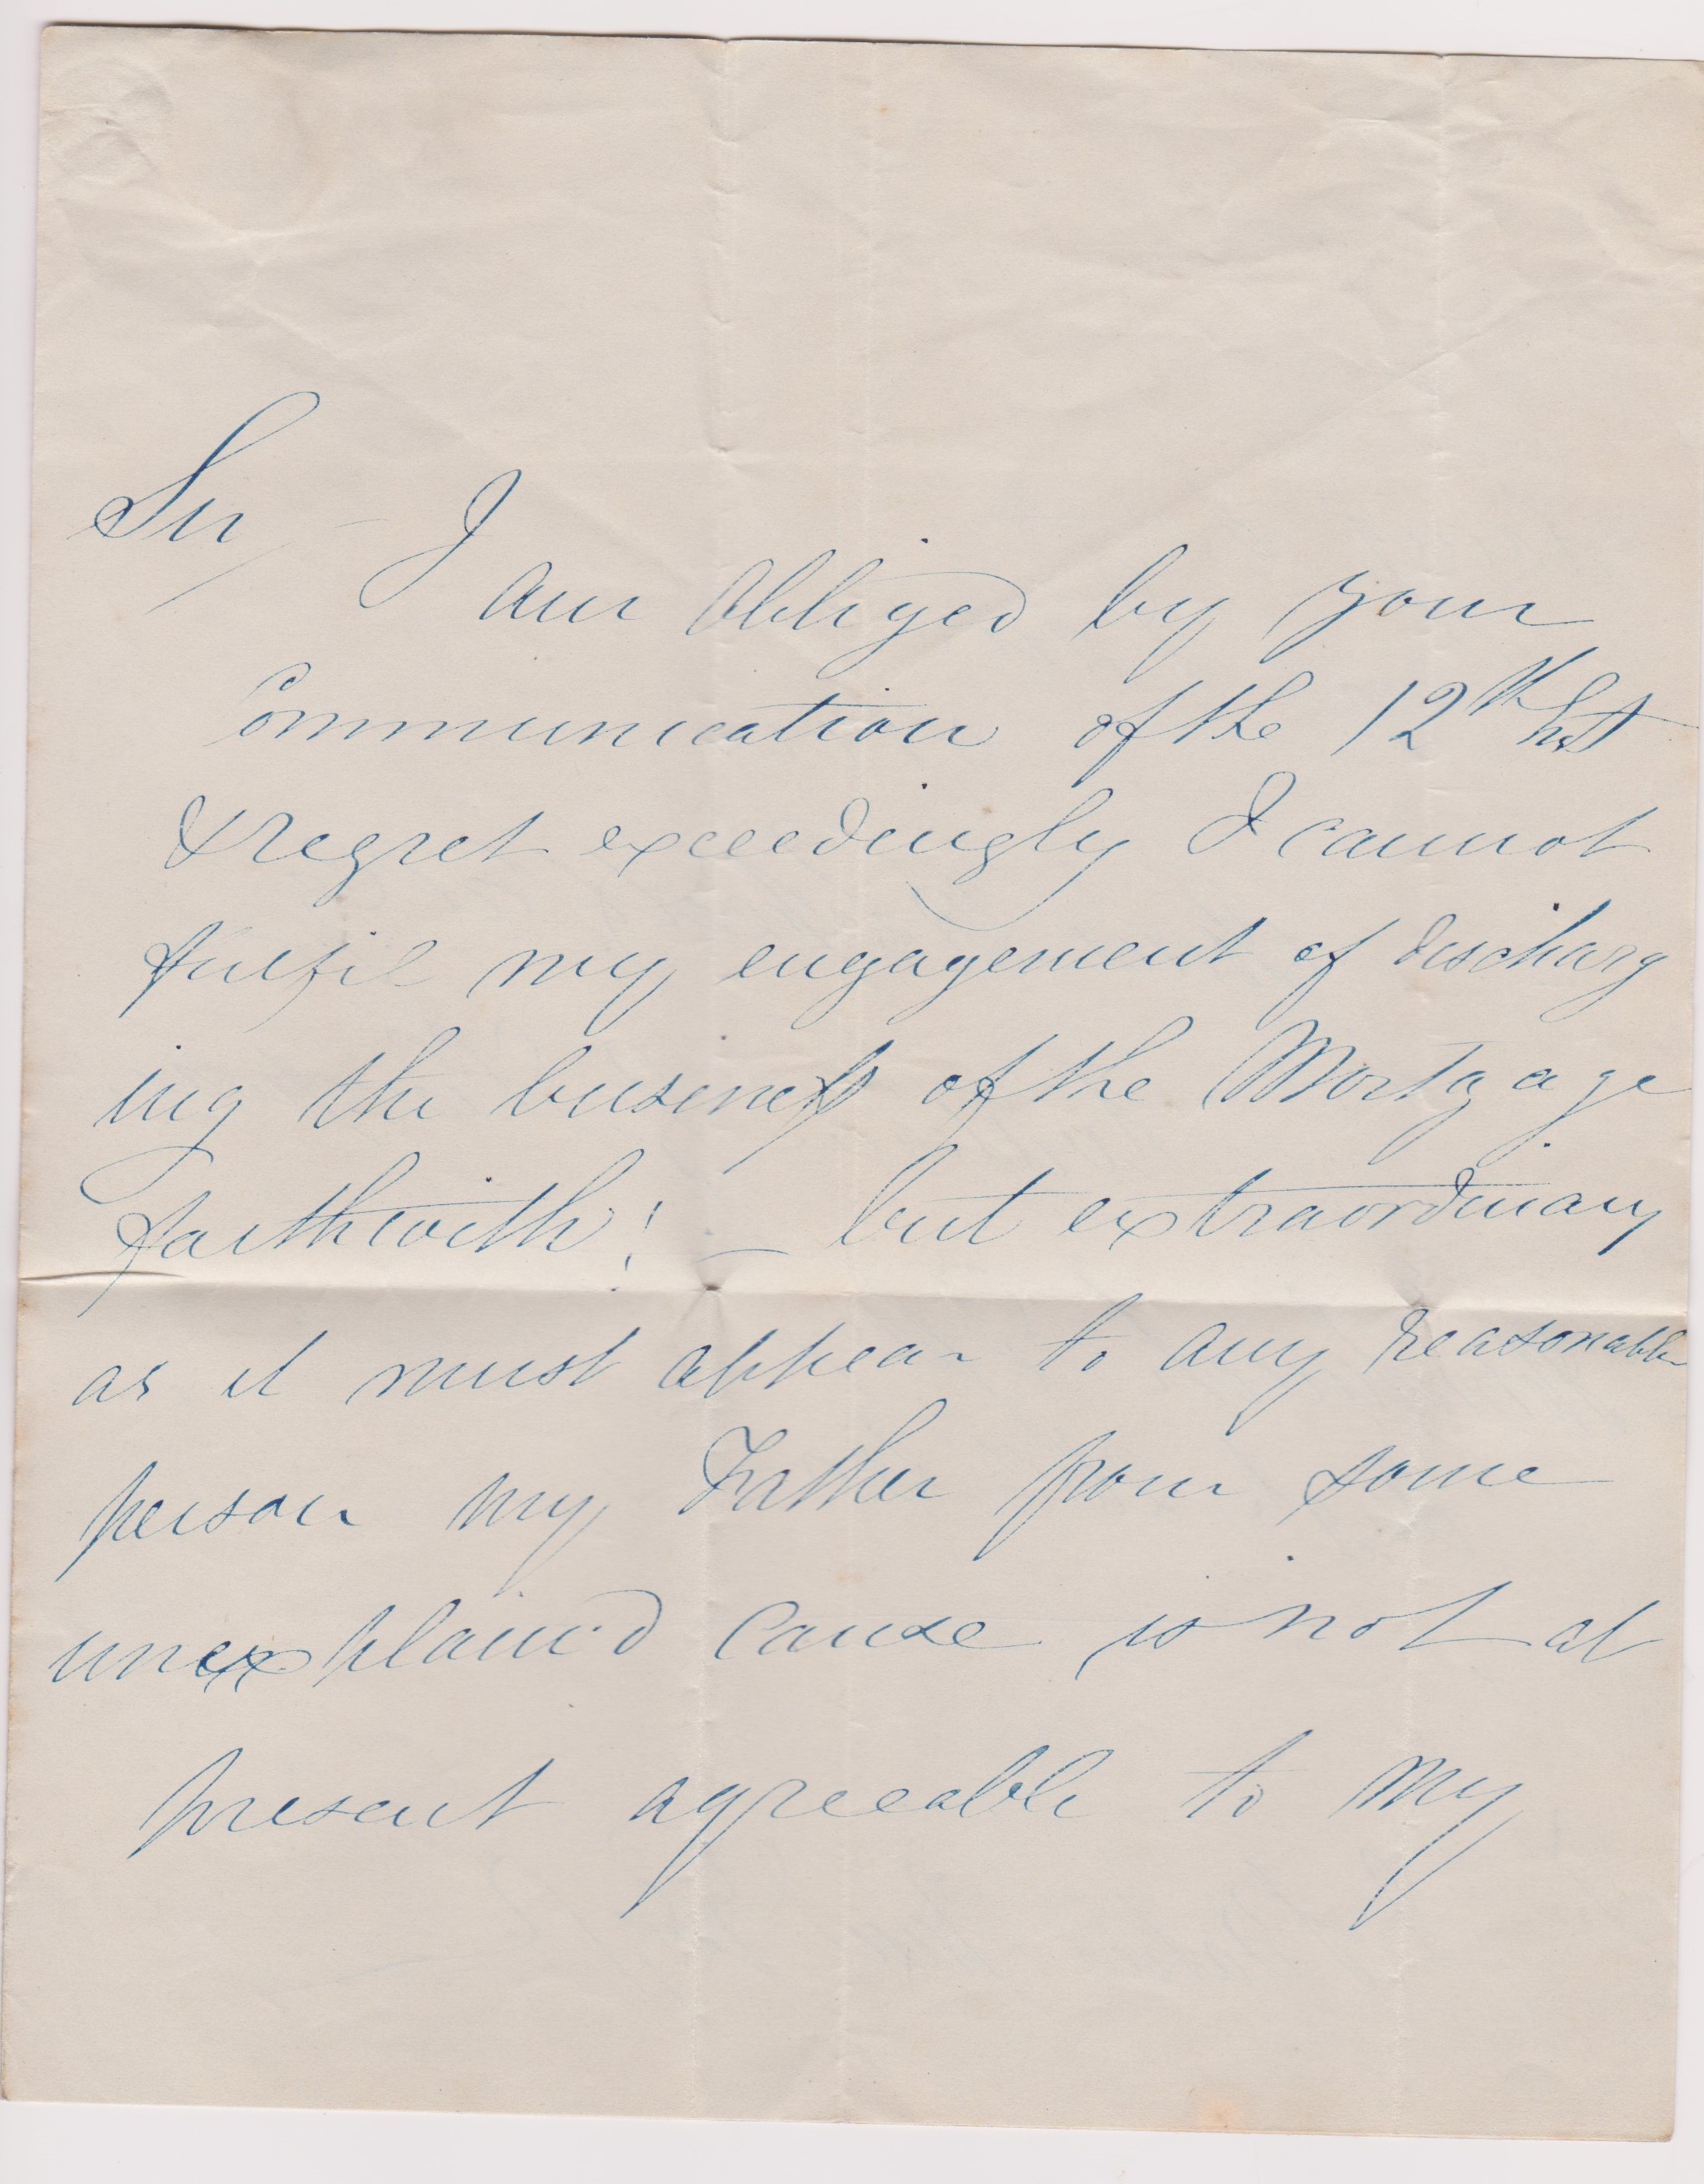 Sir, - I
am obliged by your
Communication of the 12th Inst
& regret exceedingly I cannot
fulfil my engagement of discharg
ing the business of the Mortgage
forthwith! - but extraordinary
as it must appear to any reasonable
person my Father from some
unexplain'd cause is not at
present agreeable to my